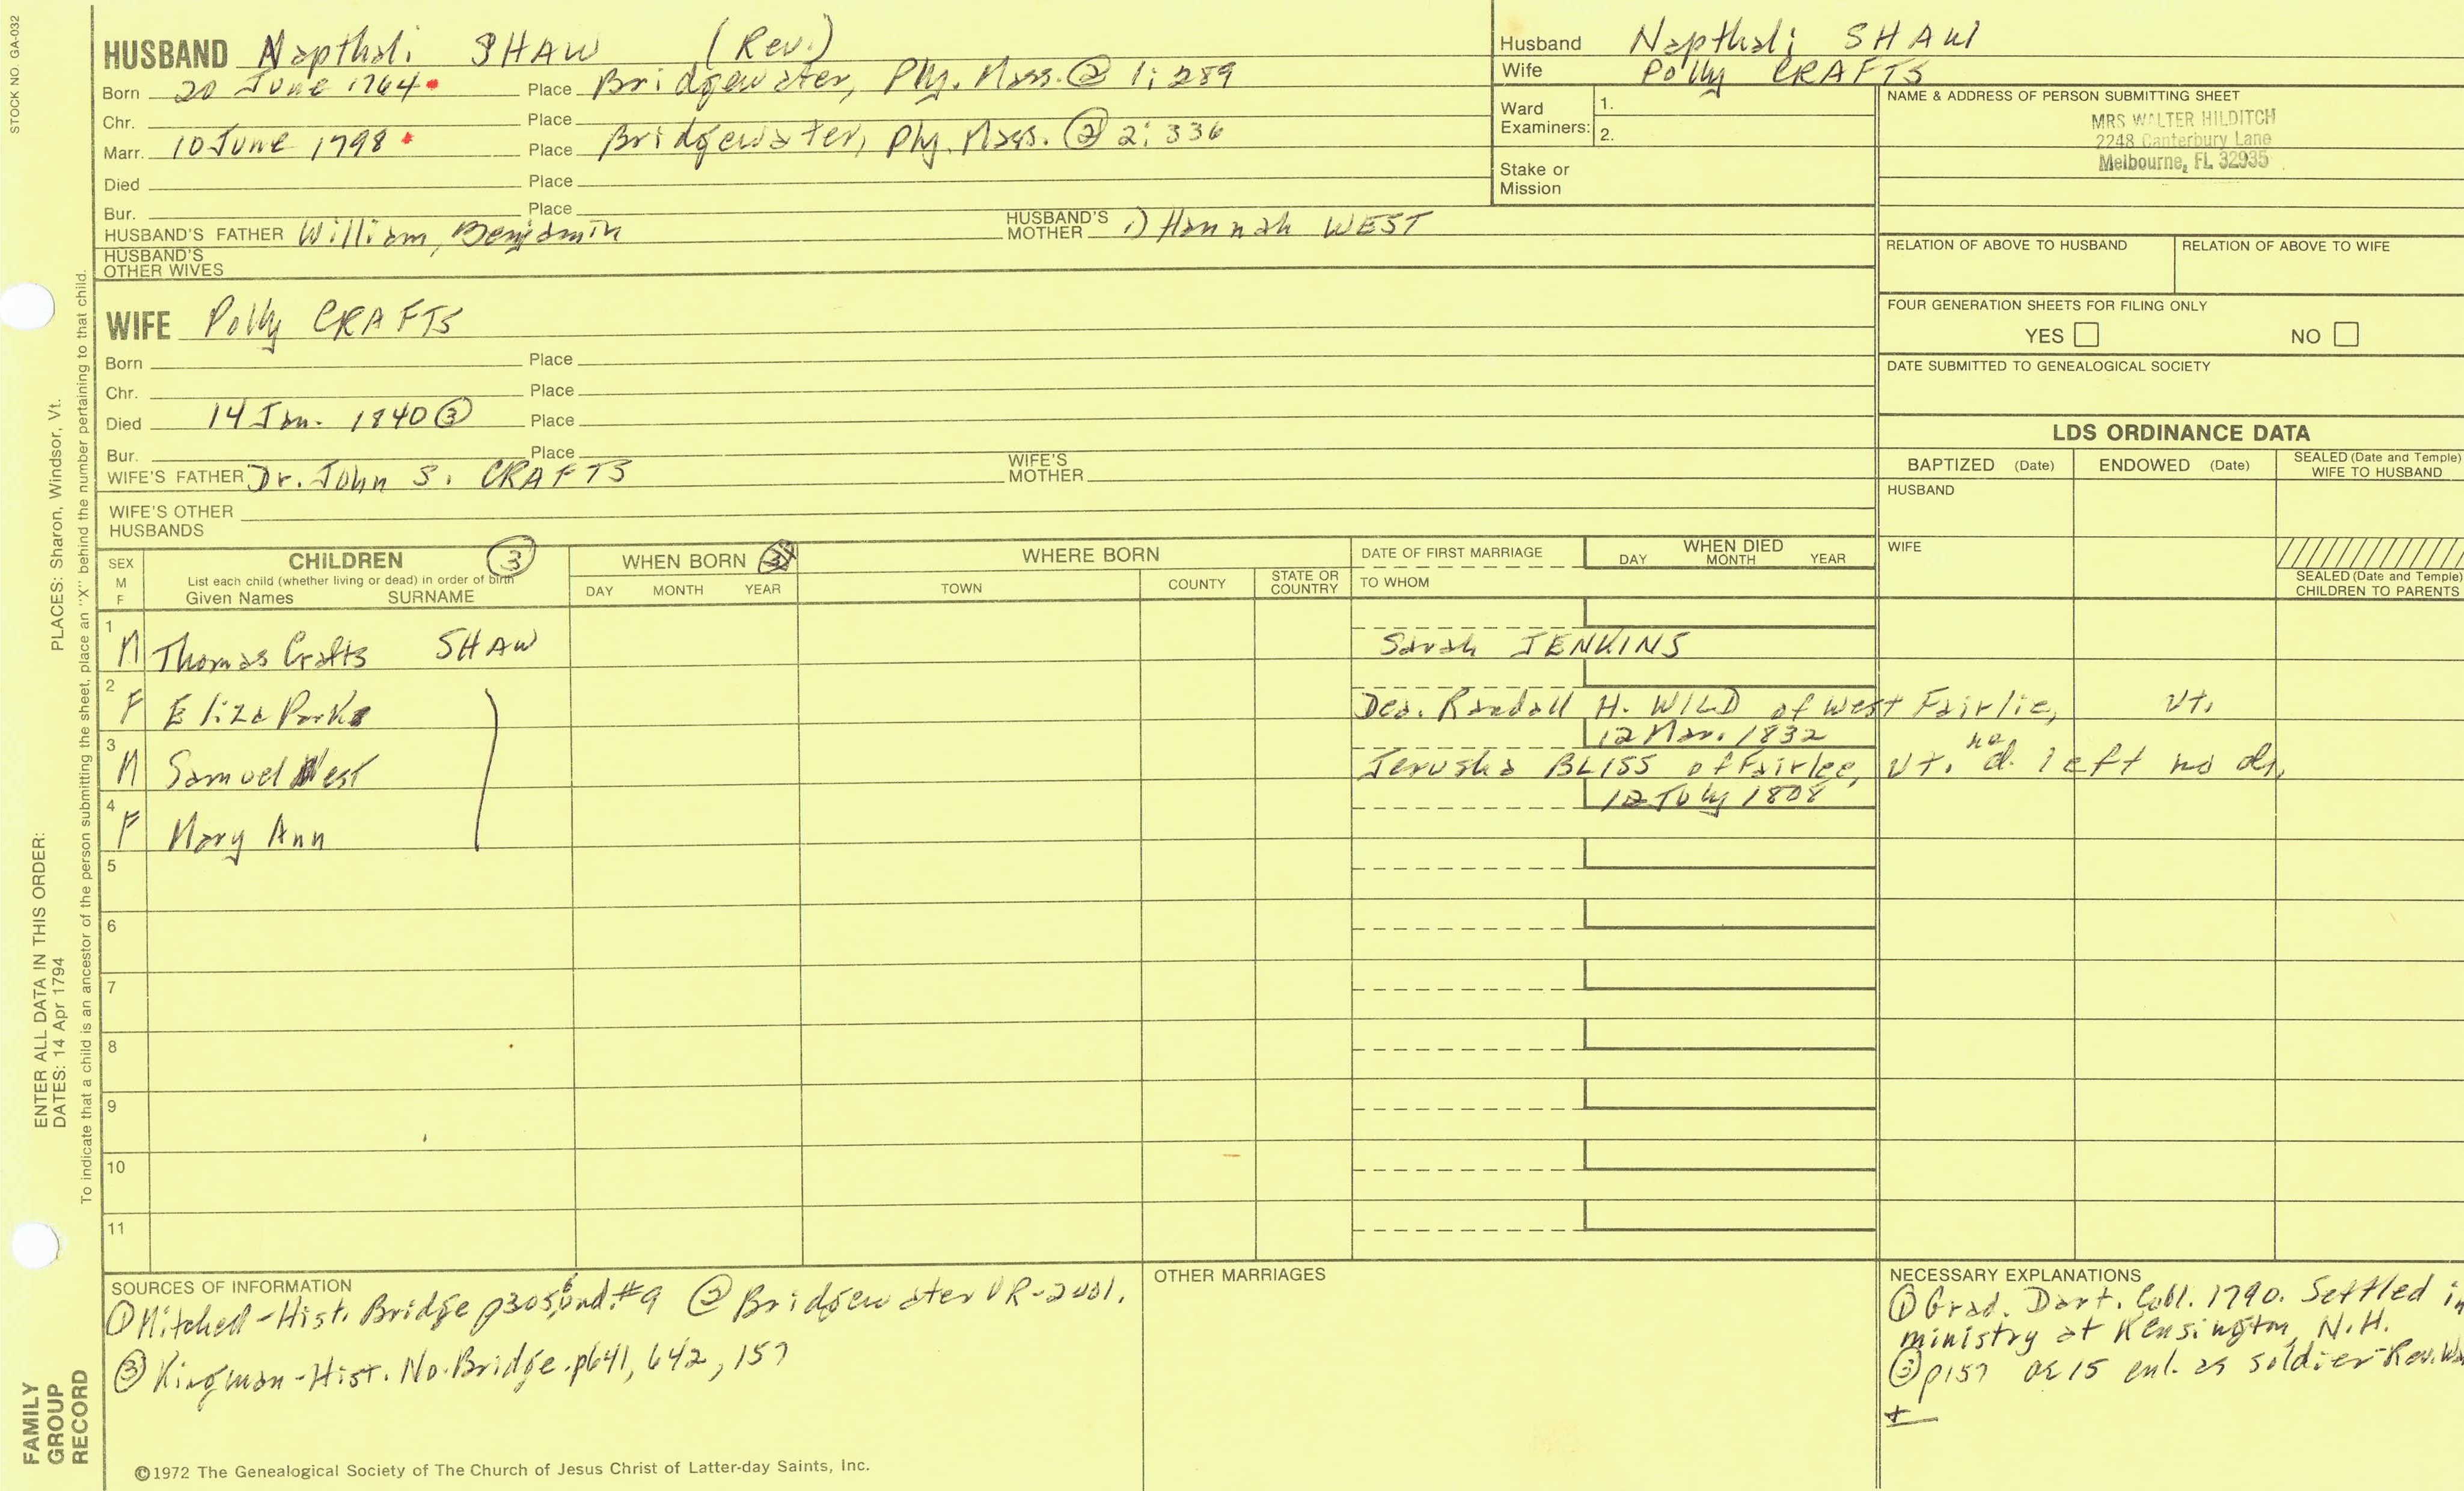 STOCK NO. GA-032
HUSBAND Napthali SHAW (Rev.)
Born 20 June 1764 Place Bridgewater, Ply. Mass. ② 1:289
Chr. Place
Marr. 10 June 1798 Place Bridgewater, Ply. Mass. ② 2:336
Died Place
Bur. Place
HUSBAND'S FATHER William, Benjamin HUSBAND'S MOTHER 1) Hannah WEST
HUSBAND'S OTHER WIVES
Husband Napthali SHAW
Wife Polly CRAFTS
Ward Examiners: 1.
2.
Stake or Mission
NAME & ADDRESS OF PERSON SUBMITTING SHEET
MRS WALTER HILDITCH
2248 Canterbury Lane
Melbourne, FL 32935
RELATION OF ABOVE TO HUSBAND RELATION OF ABOVE TO WIFE
FOUR GENERATION SHEETS FOR FILING ONLY
YES NO
DATE SUBMITTED TO GENEALOGICAL SOCIETY
WIFE Polly CRAFTS
Born Place
Chr. Place
Died 14 Jan. 1840 ③ Place
Bur. Place
WIFE'S FATHER Dr. John S. CRAFTS WIFE'S MOTHER
WIFE'S OTHER HUSBANDS
LDS ORDINANCE DATA
BAPTIZED (Date) ENDOWED (Date) SEALED (Date and Temple) WIFE TO HUSBAND
HUSBAND
WIFE
SEALED (Date and Temple) CHILDREN TO PARENTS
SEX M F CHILDREN ③ WHEN BORN WHERE BORN DATE OF FIRST MARRIAGE WHEN DIED
List each child (whether living or dead) in order of birth
Given Names SURNAME DAY MONTH YEAR TOWN COUNTY STATE OR COUNTRY TO WHOM DAY MONTH YEAR
1 M Thomas Crafts SHAW Sarah JENKINS
2 F Eliza Parks Dea. Randall H. WILD of West Fairlie, Vt.
12 Mar. 1832
3 M Samuel West Jerusha BLISS of Fairlee, Vt. d. left no
12 July 1808
4 F Mary Ann
5
6
7
8
9
10
11
SOURCES OF INFORMATION
① Mitchell-Hist. Bridge p305 #9 ② Bridgewater VR-2vol.
③ Kingman-Hist. No. Bridge. p641, 642, 157
OTHER MARRIAGES
NECESSARY EXPLANATIONS
① Grad. Dart. Coll. 1790. Settled in
ministry at Kensington, N.H.
③ p157 ae 15 enl. as soldier Rev.
©1972 The Genealogical Society of The Church of Jesus Christ of Latter-day Saints, Inc.
FAMILY GROUP RECORD
ENTER ALL DATA IN THIS ORDER:
DATES: 14 Apr 1794 PLACES: Sharon, Windsor, Vt.
To indicate that a child is an ancestor of the person submitting the sheet, place an "X" behind the number pertaining to that child.